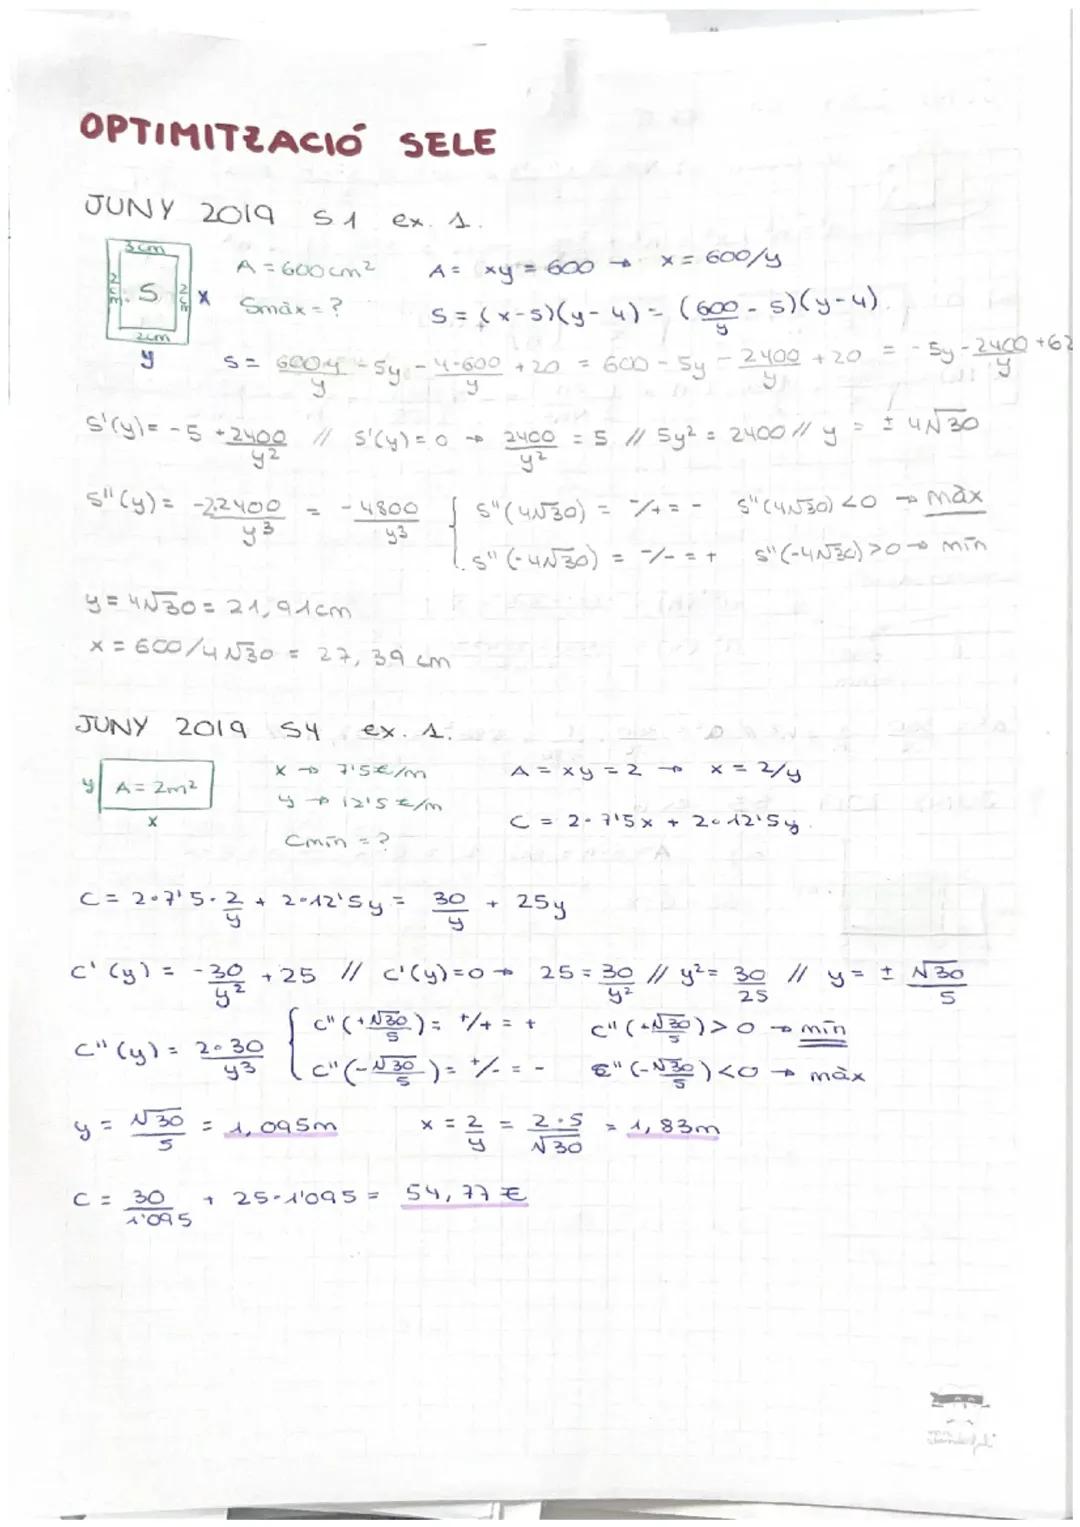 OPTIMITZACIÓ SELE
JUNY 2019 S1 ex. 1.
3cm
2cm. S 2cm x
2cm
y
A = 600cm² A = xy = 600 → x = 600/y
Smàx = ? S = (x-5)(y-4) = (600/y - 5)(y-4).
S = 600y/y - 5y - 4·600/y + 20 = 600 - 5y - 2400/y + 20 = -5y - 2400/y + 62
S'(y) = -5 + 2400/y² // S'(y) = 0 → 2400/y² = 5 // 5y² = 2400 // y = ± 4√30
S''(y) = -2·2400/y³ = -4800/y³ { S''(4√30) = -/+ = - S''(4√30) < 0 → màx
S''(-4√30) = -/- = + S''(-4√30) > 0 → mín
y = 4√30 = 21,91cm
x = 600/4√30 = 27,39 cm
JUNY 2019 S4 ex. 1.
y A = 2m²
x
x → 7'5€/m A = xy = 2 → x = 2/y
y → 12'5€/m C = 2·7'5x + 2·12'5y.
Cmín = ?
C = 2·7'5·2/y + 2·12'5y = 30/y + 25y
C'(y) = -30/y² + 25 // C'(y) = 0 → 25 = 30/y² // y² = 30/25 // y = ± √30/5
C''(y) = 2·30/y³ { C''(+√30/5) = +/+ = + C''(+√30/5) > 0 → mín
C''(-√30/5) = +/- = - C''(-√30/5) < 0 → màx
y = √30/5 = 1,095m x = 2/y = 2·5/√30 = 1,83m
C = 30/1'095 + 25·1'095 = 54,77 €